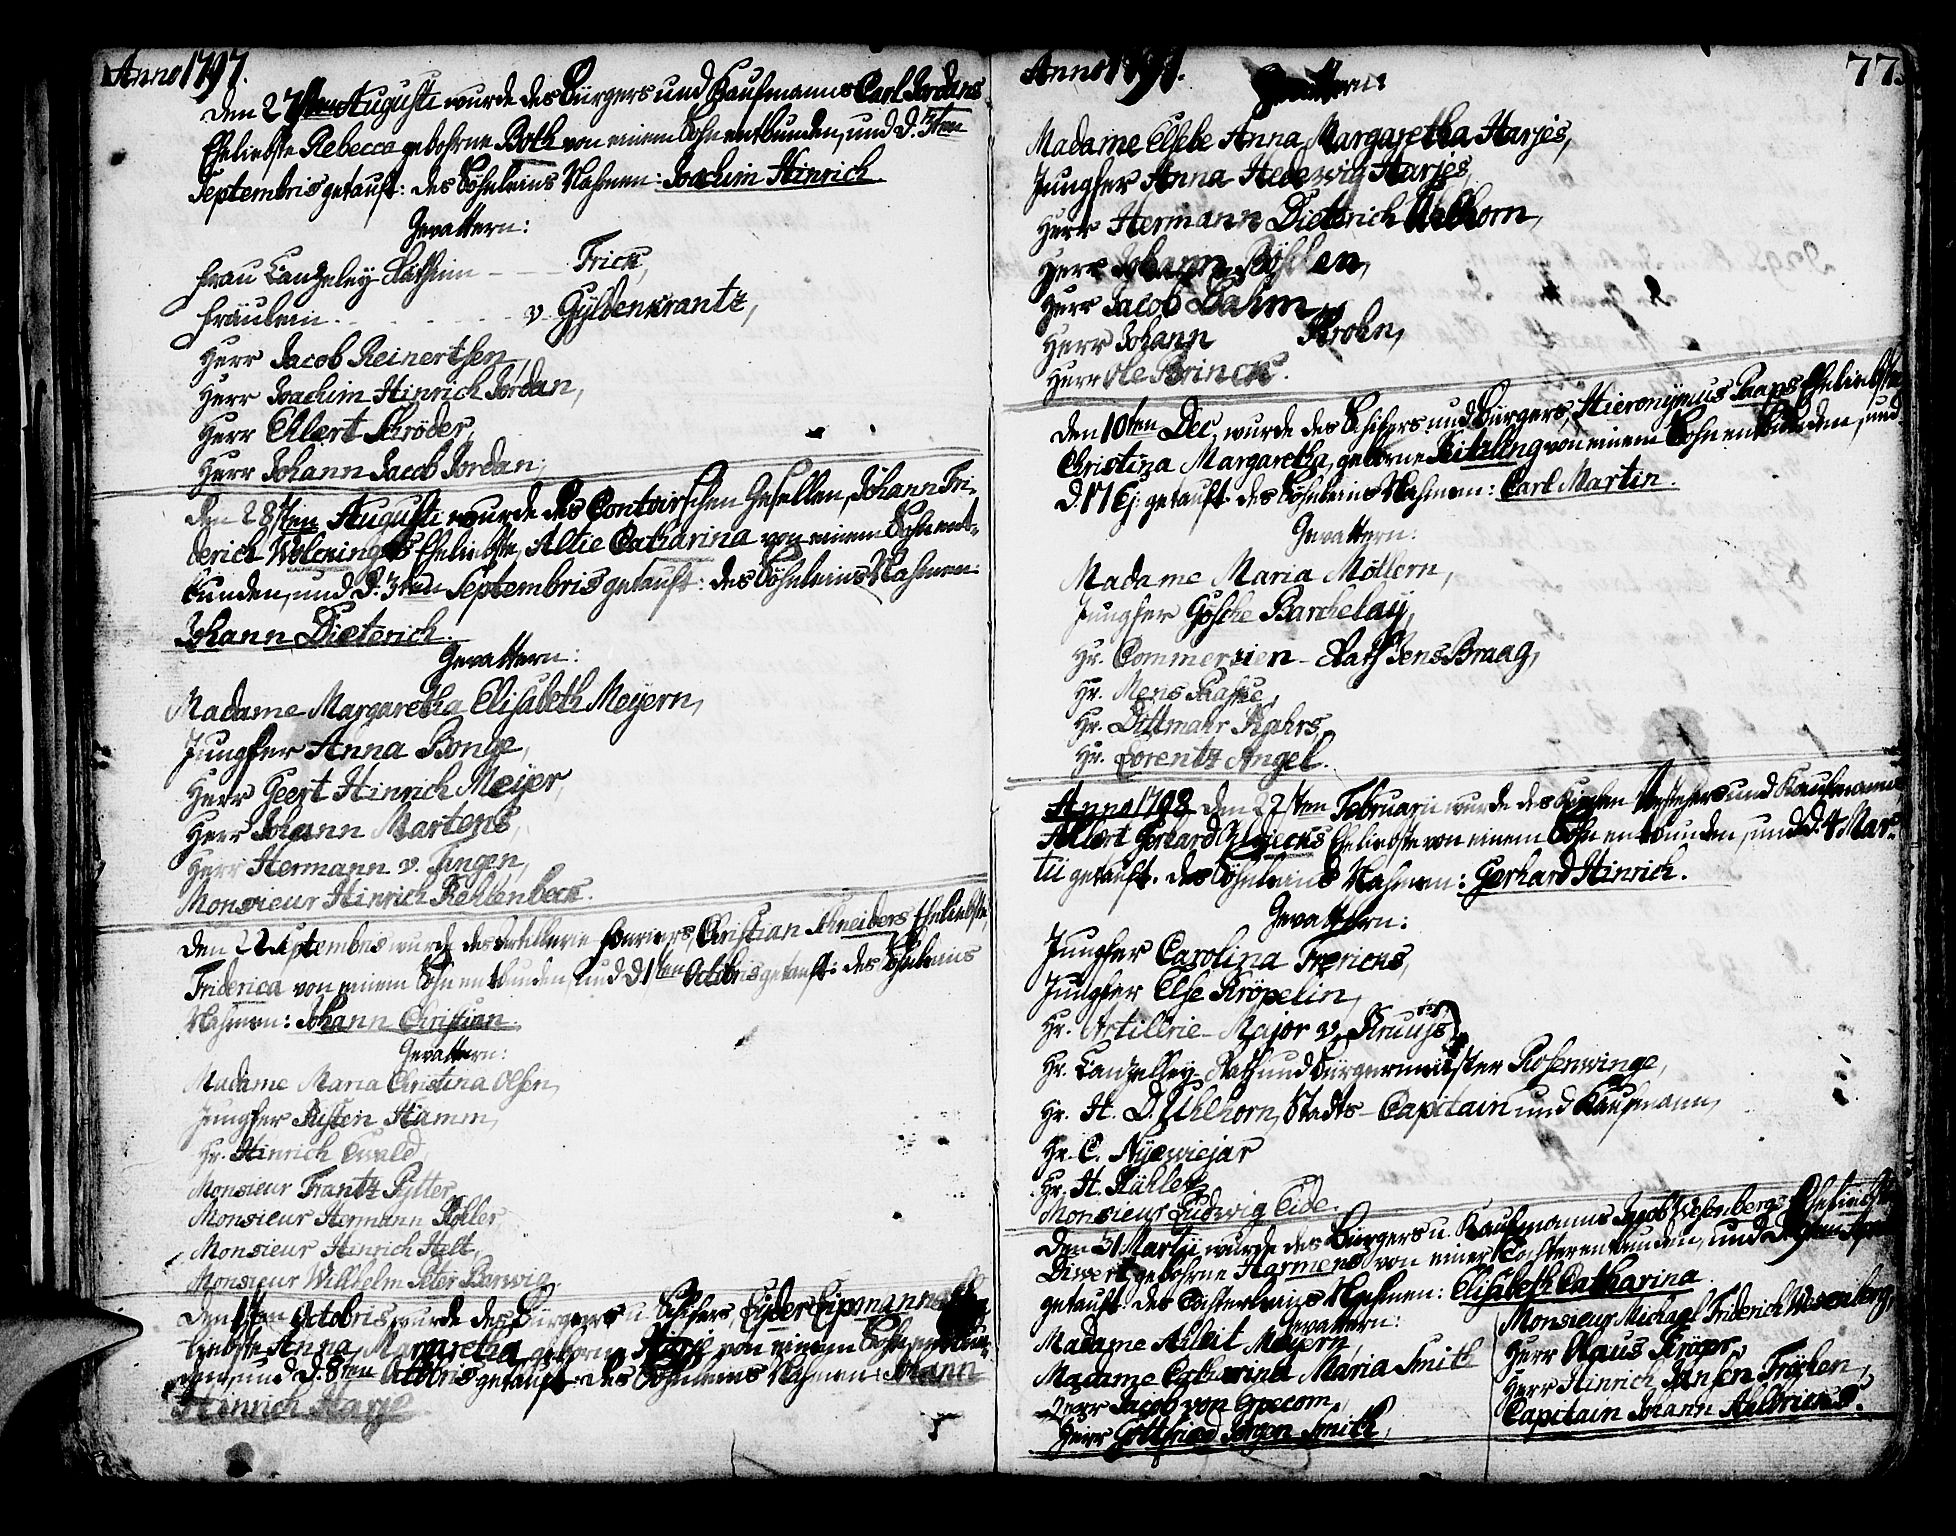 Anno 1797.
Den 27sten Augusti wurde des Bürgers und Kaufmanns Carl Jordans
Eheliebste Rebecca gebohrne Both von einem Sohn entbunden, und d.
Septembris getauft: des Söhnleins Nahmen: Joachim Hinrich.
Gevattern:
Frau Cantzeley-Räthin - - Frick,
Fräulein v. Gyldenkrantz,
Herr Jacob Reinertsen,
Herr Joachim Hinrich Jordan,
Herr Ehlert Schröder,
Herr Johann Jacob Jordan,
Den 28sten Augusti wurde des Contoirschen Gesellen, Johann Fri-
derich Eheliebste, Altie Catharina von einem Sohn ent-
bunden, und d. 3ten Septembris getauft: des Söhnleins Nahmen:
Johann Dieterich.
Gevattern:
Madame Margaretha Elisabeth Meyern,
Jungfer Anna Bonge,
Herr Geert Hinrich Meyer,
Herr Johann Martens,
Herr Hermann v. Tangen,
Monsieur Hinrich Fehlenbeck.
Den 22 Septembris wurde des Artillerie Fouriers Christian Schneiders Eheliebste,
Friderica von einem Sohn entbunden, und d. 1ten Octobris getauft: des Söhnleins
Nahmen: Johann Christian.
Gevattern:
Madame Maria Christina Olsen,
Jungfer Hamm,
Hr. Hinrich Ewald,
Monsieur Frantz Rytter
Monsieur Hermann Köller
Monsieur Hinrich Helt,
Monsieur Willhelm Peter Barwig,
Den 1ten Octobris, wurde des Bürgers u. Schifers, Lyder Eipmanns
liebste Anna Margaretha geborne Harje von einem Sohn entbun-
den, und d. 8ten Octobris getauft: des Söhnleins Nahmen: Johann
Hinrich Harje
Anno 1797. 77.
Gevattern:
Madame Elsebe Anna Margaretha Harjes,
Jungfer Anna Hedewig Harjes,
Herr Hermann Dieterich Uhlhorn,
Herr Johann
Herr Jacob Dahm,
Herr Johann Krohn,
Herr Ole Brinck.
Den 10ten Dec. wurde des Schifers und Bürgers, Hieronymus Paaps Eheliebste
Christina Margaretha, geborne von einem Sohn entbunden, und
d. 17 Ej. getauft: des Söhnleins Nahmen: Carl Martin.
Gevattern:
Madame Maria Möllern,
Jungfer Gösche Barchelay,
Hr. Commercien-Rath Jens Braag,
Hr. Mens
Hr. Dittmahr Kahrs,
Hr. Lorentz Angel.
Anno 1798. Den 22sten Februarii wurde des Kirchen Vorstehers und Kaufmanns
Albert Gerhard Eheliebste von einem Sohn entbunden, und d. 4 Mar-
tii getauft. des Söhnleins Nahmen: Gerhard Hinrich.
Gevattern:
Jungfer Carolina Frericks,
Jungfer Else Kröpelin,
Hr. Artillerie-Major v. Kruuse
Hr. Cantzelley-Rath und Bürgermeister Rosenwinge,
Hr. H. D. Uhlhorn, Stadts-Capitain und Kaufmann,
Hr. C.
Hr. H. Kühler
Monsieur Ludwig Eide.
Den 31 Martii, wurde des Bürgers u. Kaufmanns Jacob Wesenbergs Eheliebste
Diwert, gebohrne Harmens von einer Tochter entbunden, und
getauft: des Töchterleins Nahmen: Elisabeth Catharina.
Gevattern:
Madame Adleit Meyern,
Madame Catharina Maria Smith
Herr Jacob von Epecom,
Herr Gottfried Jörgen Smith,
Monsieur Michael Friderich Wesenberg,
Herr Klaus Kröger,
Herr Hinrich Jansen Fricken,
Capitain Johann Ahlbrims.